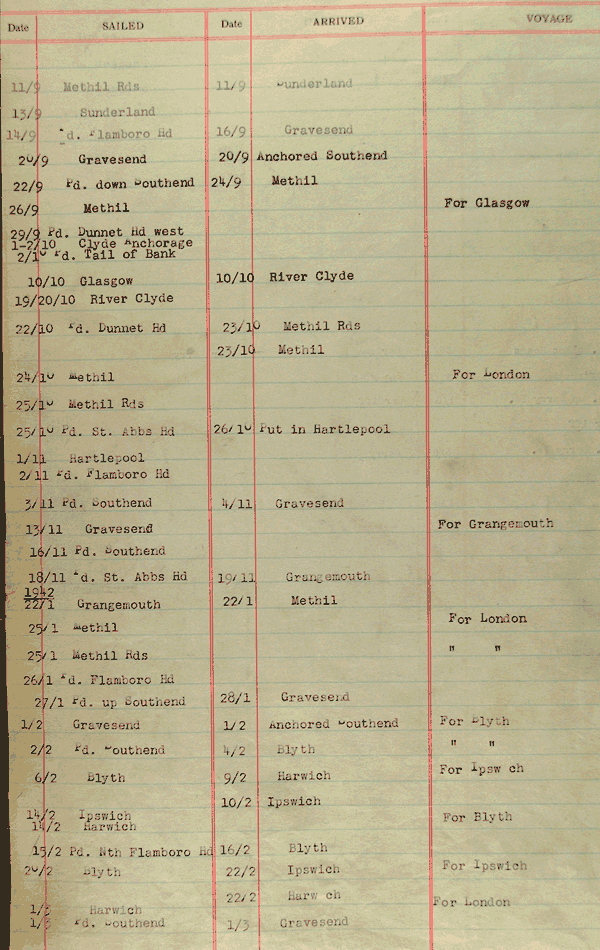 Date SAILED Date ARRIVED VOYAGE
11/9 Methil Rds 11/9 Sunderland
13/9 Sunderland
14/9 Pd. Flamboro Hd 16/9 Gravesend
20/9 Gravesend 20/9 Anchored Southend
22/9 Pd. down Southend 24/9 Methil
26/9 Methil For Glasgow
29/9 Pd. Dunnet Hd west
1-2/10 Clyde Anchorage
2/10 Pd. Tail of Bank
10/10 Glasgow 10/10 River Clyde
19/20/10 River Clyde
22/10 Pd. Dunnet Hd 23/10 Methil Rds
23/10 Methil
24/10 Methil For London
25/10 Methil Rds
25/10 Pd. St. Abbs Hd 26/10 Put in Hartlepool
1/11 Hartlepool
2/11 Pd. Flamboro Hd
3/11 Pd. Southend 4/11 Gravesend
13/11 Gravesend For Grangemouth
16/11 Pd. Southend
18/11 Pd. St. Abbs Hd 19/11 Grangemouth
1942
22/1 Grangemouth 22/1 Methil
25/1 Methil For London
25/1 Methil Rds " "
26/1 Pd. Flamboro Hd
27/1 Pd. up Southend 28/1 Gravesend
1/2 Gravesend 1/2 Anchored Southend For Blyth
2/2 Pd. Southend 4/2 Blyth " "
6/2 Blyth 9/2 Harwich For Ipsw ch
10/2 Ipswich
14/2 Ipswich For Blyth
14/2 Harwich
15/2 Pd. Nth Flamboro Hd 16/2 Blyth
20/2 Blyth 22/2 Ipswich For Ipswich
22/2 Harw ch For London
1/3 Harwich
1/3 Pd. Southend 1/3 Gravesend